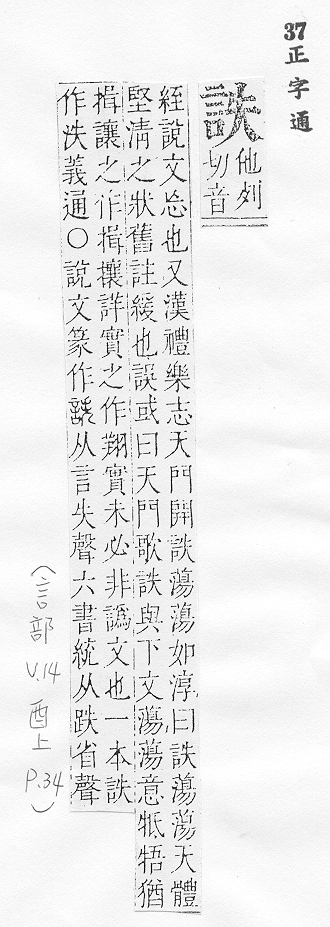 37正字通
詄
他列
切音
絰說文忘也又漢禮樂志天門開詄蕩蕩如淳曰詄蕩蕩天體
堅淸之狀舊註緩也誤或曰天門歌詄與下文蕩蕩意牴牾猶
揖讓之作揖攘詳實之作翔實未必非譌文也一本詄
作泆義通○說文篆作詄从言失聲六書統从跌省聲
(言部 V.14 酉上 P.34)